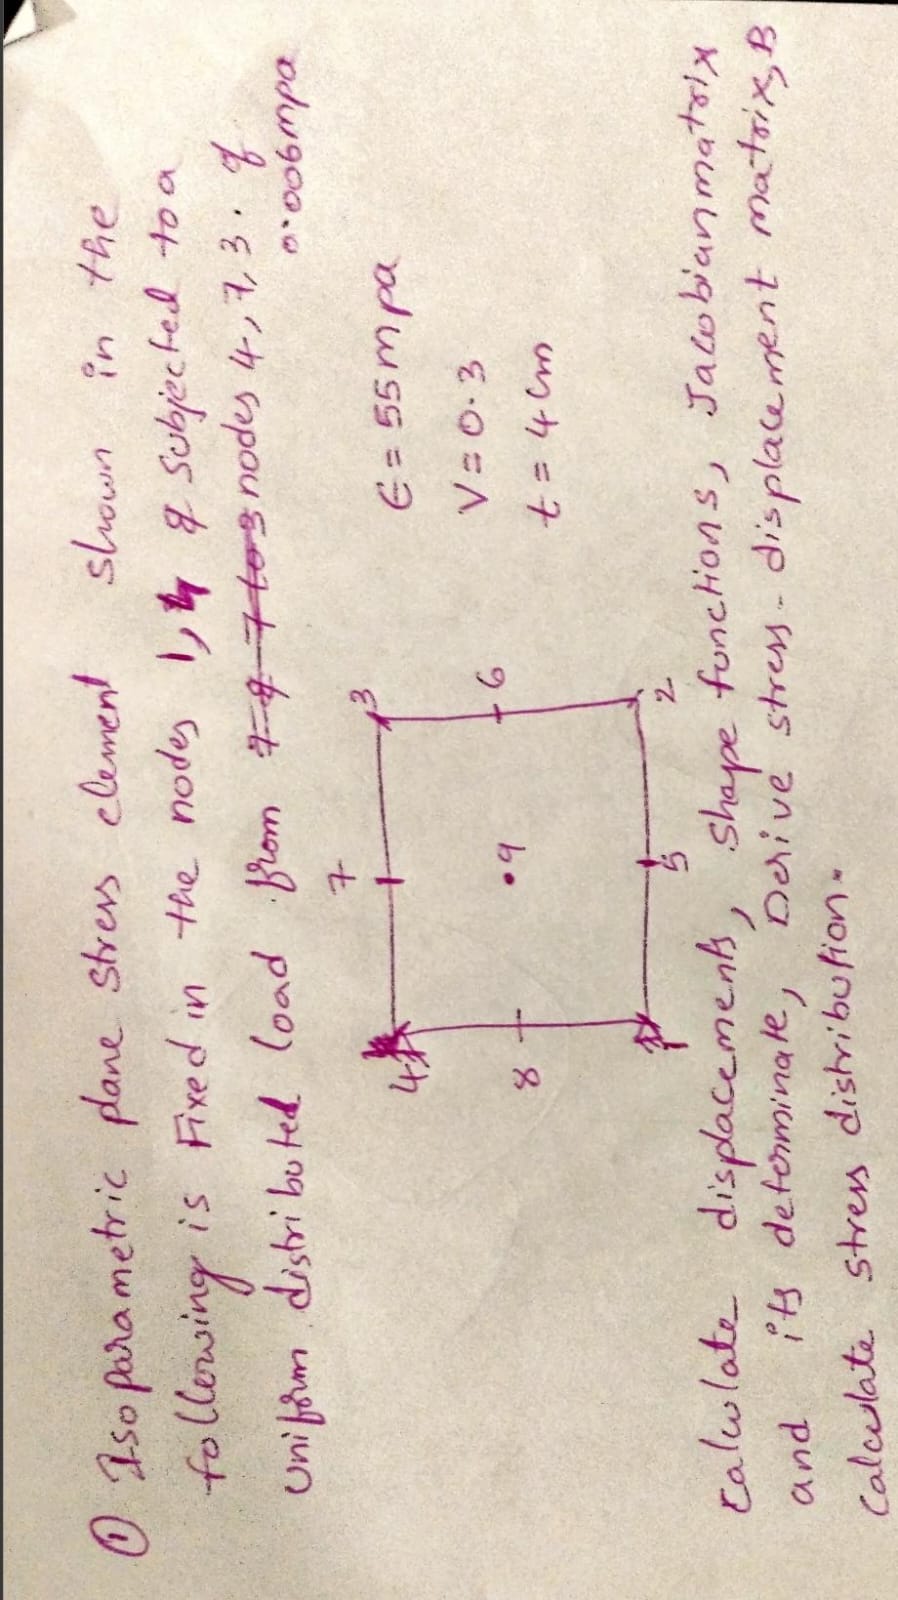 ① Isoparametric plane stress element shown in the
following is Fixed in the nodes 1, 4 & subjected to a
Uniform distributed load from nodes 4, 7, 3. of
0.006mpa
E = 55mpa
V = 0.3
t = 4cm
7
3
4
6
8
.9
1
5
2
Calculate displacements, shape functions, Jacobian matrix
and its determinate, Derive stress-displacement matrix, B
Calculate stress distribution.